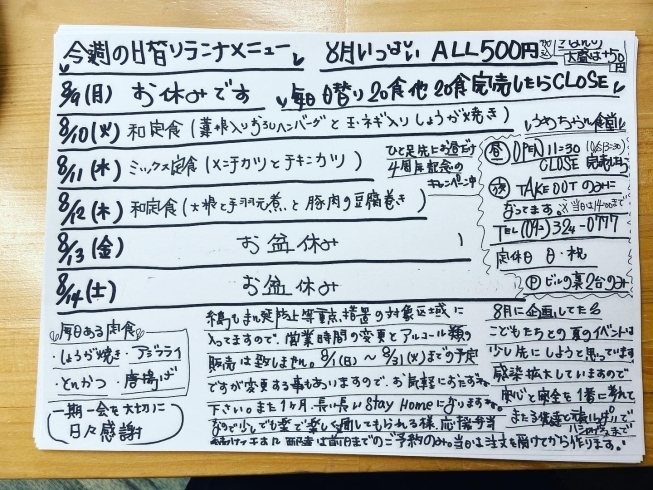 今週の日替りランチメニュー
8月いっぱい ALL500円
大盛は+50円
8/9(月) お休みです
毎日日替り20食他20食完売したらCLOSE
8/10(火) 和定食(蓮根入りおろしハンバーグと玉ネギ入りしょうが焼き)
8/11(水) ミックス定食(メンチカツとチキンカツ)
8/12(木) 和定食(大根と手羽元煮と豚肉の豆腐巻き)
8/13(金) お盆休み
8/14(土) お盆休み
ひと足先にお昼だけ
4周年記念の
キャンペーン中
うめちゃん食堂
昼 OPEN 11:30
CLOSE 完売まで
夜 TAKE OUTのみに
なってます。
定休日 日・祝
P ビルの裏2台のみ
毎日ある定食
・しょうが焼き ・アジフライ
・とんかつ ・唐揚げ
一期一会を大切に
日々感謝
まん延防止等重点措置の対象区域に
入ってますので、営業時間の変更とアルコール類の
販売は致しません。8/1(日)〜8/31(火)までの予定
ですが変更する事もありますので、お気軽におたずね
下さい。また1ヶ月長い長いStay Homeになりますね。
少しでも楽で楽しく過してもらえる様、応援弁当
は前日までのご予約のみ。当日は注文を受けてから作ります。
8月に企画してた
こどもたちとの夏のイベントは
少し先にしようと思っています
感染拡大していますので
安心と安全を1番に考えて